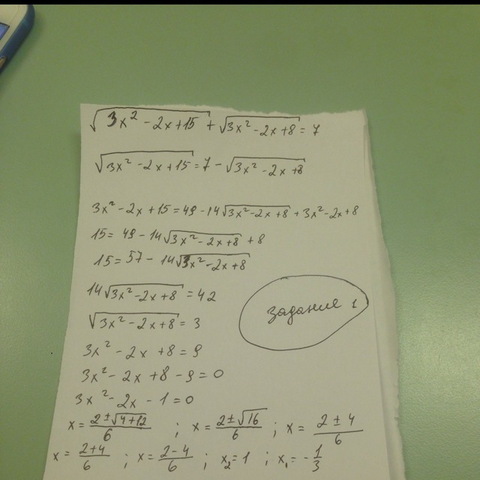 √(3x² - 2x + 15) + √(3x² - 2x + 8) = 7
√(3x² - 2x + 15) = 7 - √(3x² - 2x + 8)
3x² - 2x + 15 = 49 - 14√(3x² - 2x + 8) + 3x² - 2x + 8
15 = 49 - 14√(3x² - 2x + 8) + 8
15 = 57 - 14√(3x² - 2x + 8)
14√(3x² - 2x + 8) = 42
задание 1
√(3x² - 2x + 8) = 3
3x² - 2x + 8 = 9
3x² - 2x + 8 - 9 = 0
3x² - 2x - 1 = 0
x = (2 ± √(4+12))/6 ; x = (2 ± √16)/6 ; x = (2 ± 4)/6
x = (2+4)/6 ; x = (2-4)/6 ; x₂ = 1 ; x₁ = -1/3